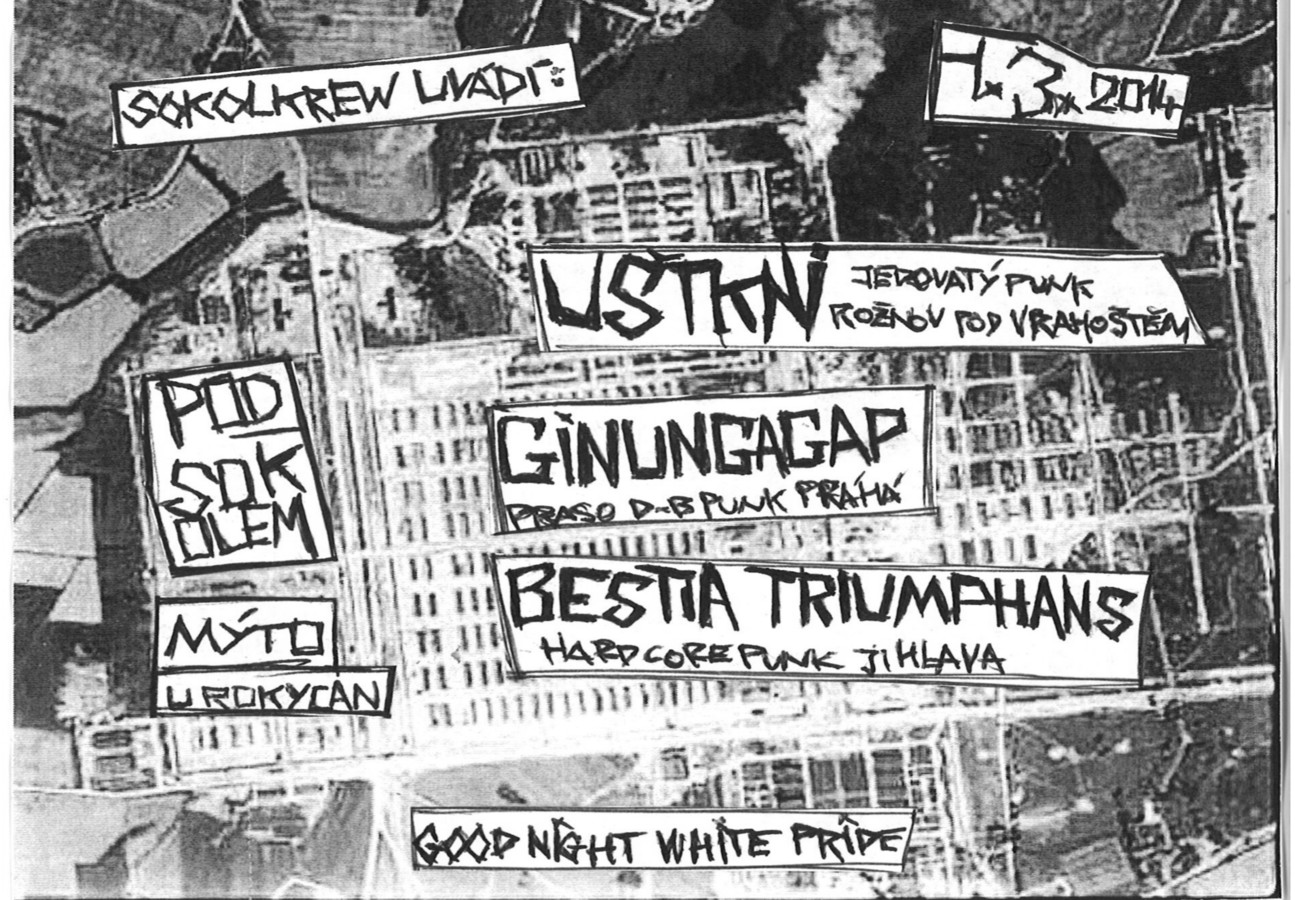 SOKOLKREW UVÁDÍ:
1.3. 2014
UŠTKNI
JEDOVATÝ PUNK
ROŽNOV POD VRAHOŠTĚM
POD
SOK
OLEM
GINUNGAGAP
PRASO D-B PUNK PRÁHÁ
BESTIA TRIUMPHANS
HARDCORE PUNK JIHLAVA
MÝTO
U ROKYCAN
GOOD NIGHT WHITE PRIDE